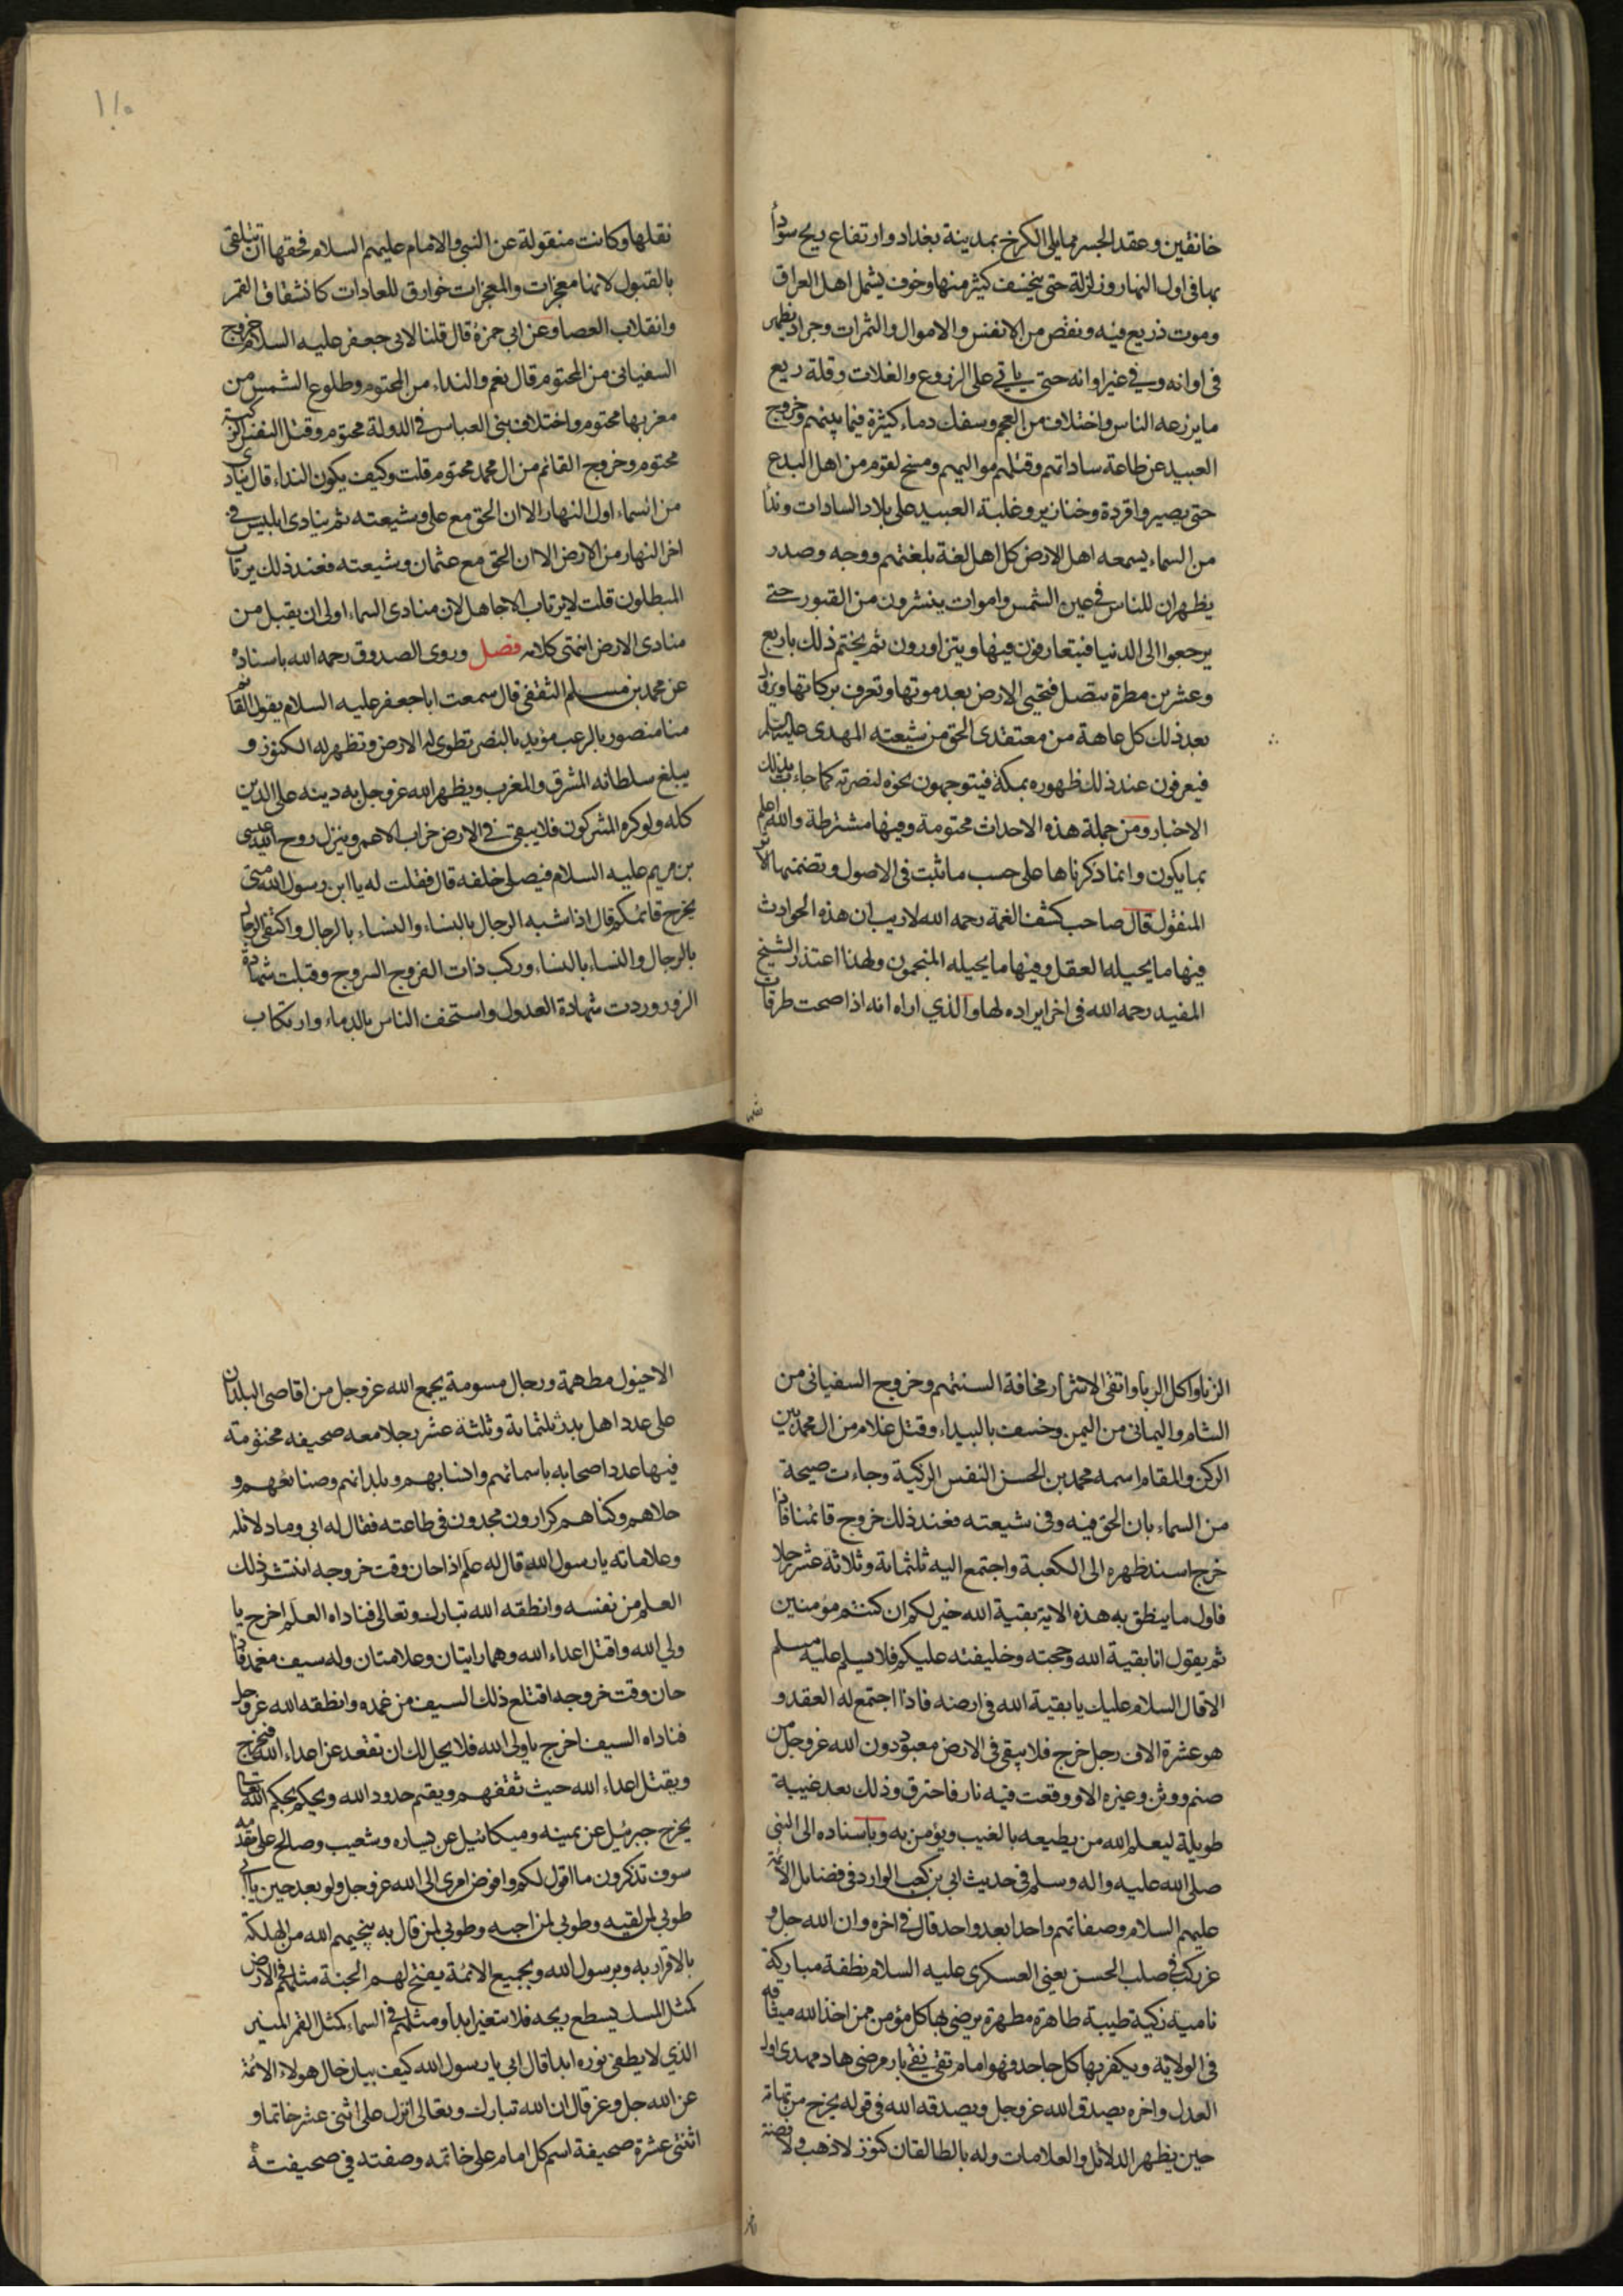 خانقين وعقد الجسر مما يلي الكرخ بمدينة بغداد وارتفاع ريح سودأ
بها في اول النهار وزلزلة حتى ينخسف كثير منها وخوف يشمل اهل العراق
وموت ذريع فيه ونقص من الانفس والاموال والثمرات وجراد يظهر
في اوانه وفي غير اوانه حتى ياتي على الزروع والغلات وقلة ريع
ما يزرعه الناس واختلاف من العجم وسفك دماء كثيرة فيما بينهم وخروج
العبيد عن طاعة ساداتهم وقتلهم مواليهم ومسخ لقوم من اهل البدع
حتى يصيروا قردة وخنازير وغلبة العبيد على بلاد السادات وندأ
من السماء يسمعه اهل الارض كل اهل لغة بلغتهم ووجه وصدر
يظهران للناس في عين الشمس واموات ينشرون من القبور حتى
يرجعوا الى الدنيا فيتعارفون فيها ويتزاورون ثم يختم ذلك باربع
وعشرين مطرة يتصل فتحيى الارض بعد موتها وتعرف بركاتها ويزول
بعد ذلك كل عاهة من معتقدى الحق من شيعته المهدى عليه السلم
فيعرفون عند ذلك ظهوره بمكة فيتوجهون نحوه لنصرته كما جاءت بذلك
الاخبار ومن جملة هذه الاحداث محتومة وفيها مشترطة والله اعلم
بما يكون وانما ذكرناها على حسب ما ثبت في الاصول وتضمنها الاثر
المنقول قال صاحب كشف الغمة رحمه الله لاريب ان هذه الحوادث
فيها ما يحيله العقل وفيها ما يحيله المنجمون ولهذا اعتذر الشيخ
المفيد رحمه الله في اخر ايراده لها والذي اراه انه اذا صحت طرقات
نقلها وكانت منقولة عن النبي والامام عليهم السلام فحقها ان تتلقى
بالقبول لانها معجزات والمعجزات خوارق للعادات كانشقاق القمر
وانقلاب العصا وعن ابى حمزة قال قلنا لابى جعفر عليه السلام خروج
السفيانى من المحتوم قال نعم والنداء من المحتوم وطلوع الشمس من
مغربها محتوم واختلاف بنى العباس في الدولة محتوم وقتل النفس الزكية
محتوم وخروج القائم من ال محمد محتوم قلت وكيف يكون النداء قال ينادى
من السماء اول النهار الا ان الحق مع على وشيعته ثم ينادى ابليس في
اخر النهار من الارض الا ان الحق مع عثمان وشيعته فعند ذلك يرتاب
المبطلون قلت لايرتاب الا جاهل لان منادى السماء اولى ان يقبل من
منادى الارض انتهى كلامه فصل وروى الصدوق رحمه الله باسناده
عن محمد بن مسلم الثقفى قال سمعت اباجعفر عليه السلام يقول القائم
منا منصور بالرعب مؤيد بالنصر تطوى له الارض وتظهر له الكنوز و
يبلغ سلطانه المشرق والمغرب ويظهر الله عز وجل به دينه على الدين
كله ولو كره المشركون فلا يبقى في الارض خراب الا عمر وينزل روح الله عيسى
بن مريم عليه السلام فيصلى خلفه قال فقلت له يا ابن رسول الله متى
يخرج قائمكم قال اذا شبه الرجال بالنساء والنساء بالرجال واكتفى الرجال
بالرجال والنساء بالنساء وركب ذات الفروج السروج وقبلت شهادة
الزور وردت شهادة العدول واستخف الناس بالدماء وارتكاب
الزنا واكل الربا واتقى الاشرار مخافة السنتهم وخروج السفيانى من
الشام واليمانى من اليمن وخسف بالبيداء وقتل غلام من ال محمد بين
الركن والمقام اسمه محمد بن الحسن النفس الزكية وجاءت صيحة
من السماء بان الحق فيه وفى شيعته فعند ذلك خروج قائمنا فاذا
خرج اسند ظهره الى الكعبة واجتمع اليه ثلثمائة وثلاثة عشر رجلا
فاول ما ينطق به هذه الاية بقية الله خير لكم ان كنتم مؤمنين
ثم يقول انا بقية الله وحجته وخليفته عليكم فلا يسلم عليه مسلم
الا قال السلام عليك يا بقية الله في ارضه فاذا اجتمع له العقد و
هو عشرة الاف رجل خرج فلا يبقى في الارض معبود دون الله عز وجل من
صنم ووثن وغيره الا ووقعت فيه نار فاحترق وذلك بعد غيبة
طويلة ليعلم الله من يطيعه بالغيب ويؤمن به وباسناده الى النبى
صلى الله عليه واله وسلم في حديث ابى بن كعب الوارد فى فضايل الائمة
عليهم السلام وصفاتهم واحدا بعد واحد قال في اخره وان الله جل و
عز ركب في صلب الحسن يعنى العسكرى عليه السلام نطفة مباركة
نامية زكية طيبة طاهرة مطهرة يرضى بها كل مؤمن ممن اخذ الله ميثاقه
في الولاية ويكفر بها كل جاحد فهو امام تقى نقى بار مرضى هاد مهدى اول
العدل واخره يصدق الله عز وجل ويصدقه الله في قوله يخرج من تهامة
حين يظهر الدلائل والعلامات وله بالطالقان كنوز لا ذهب ولا فضة
الا خيول مطهمة ورجال مسومة يجمع الله عز وجل من اقاصى البلدان
على عدد اهل بدر ثلثمائة وثلثة عشر رجلا معه صحيفه مختومة
فيها عدد اصحابه باسمائهم وانسابهم وبلدانهم وصنائعهم و
حلاهم وكناهم كرارون مجدون في طاعته فقال له ابى وما دلائله
وعلاماته يا رسول الله قال له علم اذا حان وقت خروجه انتشر ذلك
العلم من نفسه وانطقه الله تبارك وتعالى فناداه العلم اخرج يا
ولي الله واقتل اعداء الله وهما رايتان وعلامتان وله سيف مغمد فاذا
حان وقت خروجه اقتلع ذلك السيف من غمده وانطقه الله عز وجل
فناداه السيف اخرج يا ولى الله فلا يحل لك ان تقعد عن اعداء الله فيخرج
ويقتل اعداء الله حيث ثقفهم ويقيم حدود الله ويحكم بحكم الله تعالى
يخرج جبرئيل عن يمينه وميكائيل عن يساره وشعيب وصالح على مقدمه
سوف تذكرون ما اقول لكم وافوض امرى الى الله عز وجل ولو بعد حين يا ابى
طوبى لمن لقيه وطوبى لمن احبه وطوبى لمن قال به ينجيهم الله من الهلكة
بالاقرار به وبرسول الله وبجميع الائمة يفتح لهم الجنة مثلهم في الارض
كمثل المسك يسطع ريحه فلا يتغير ابدا ومثلهم في السماء كمثل القمر المنير
الذي لا يطفى نوره ابدا قال ابى يا رسول الله كيف بيان حال هولاء الائمة
عن الله جل وعز قال ان الله تبارك وتعالى انزل على اثنى عشر خاتما و
اثنتى عشرة صحيفة اسم كل امام على خاتمه وصفته في صحيفته